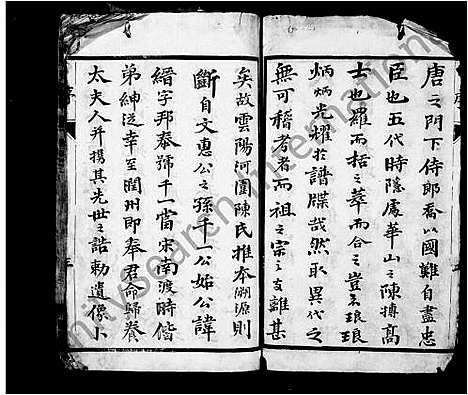 唐之門下侍郎喬以國難自盡忠
臣也五代時隐處華山之陳摶高
士也羅而括之萃而合之豈不琅琅
炳炳光耀於譜牒哉然取異代之
無可稽者而祖之宗之支離甚
矣故雲陽河圍陳氏推本溯源則
斷自文惠公之孫千一公始公諱
縉字邦奉號千一當宋南渡時偕
弟紳泛幸至閏州即奉君命歸養
太夫人并携其先世之誥勅遺像卜